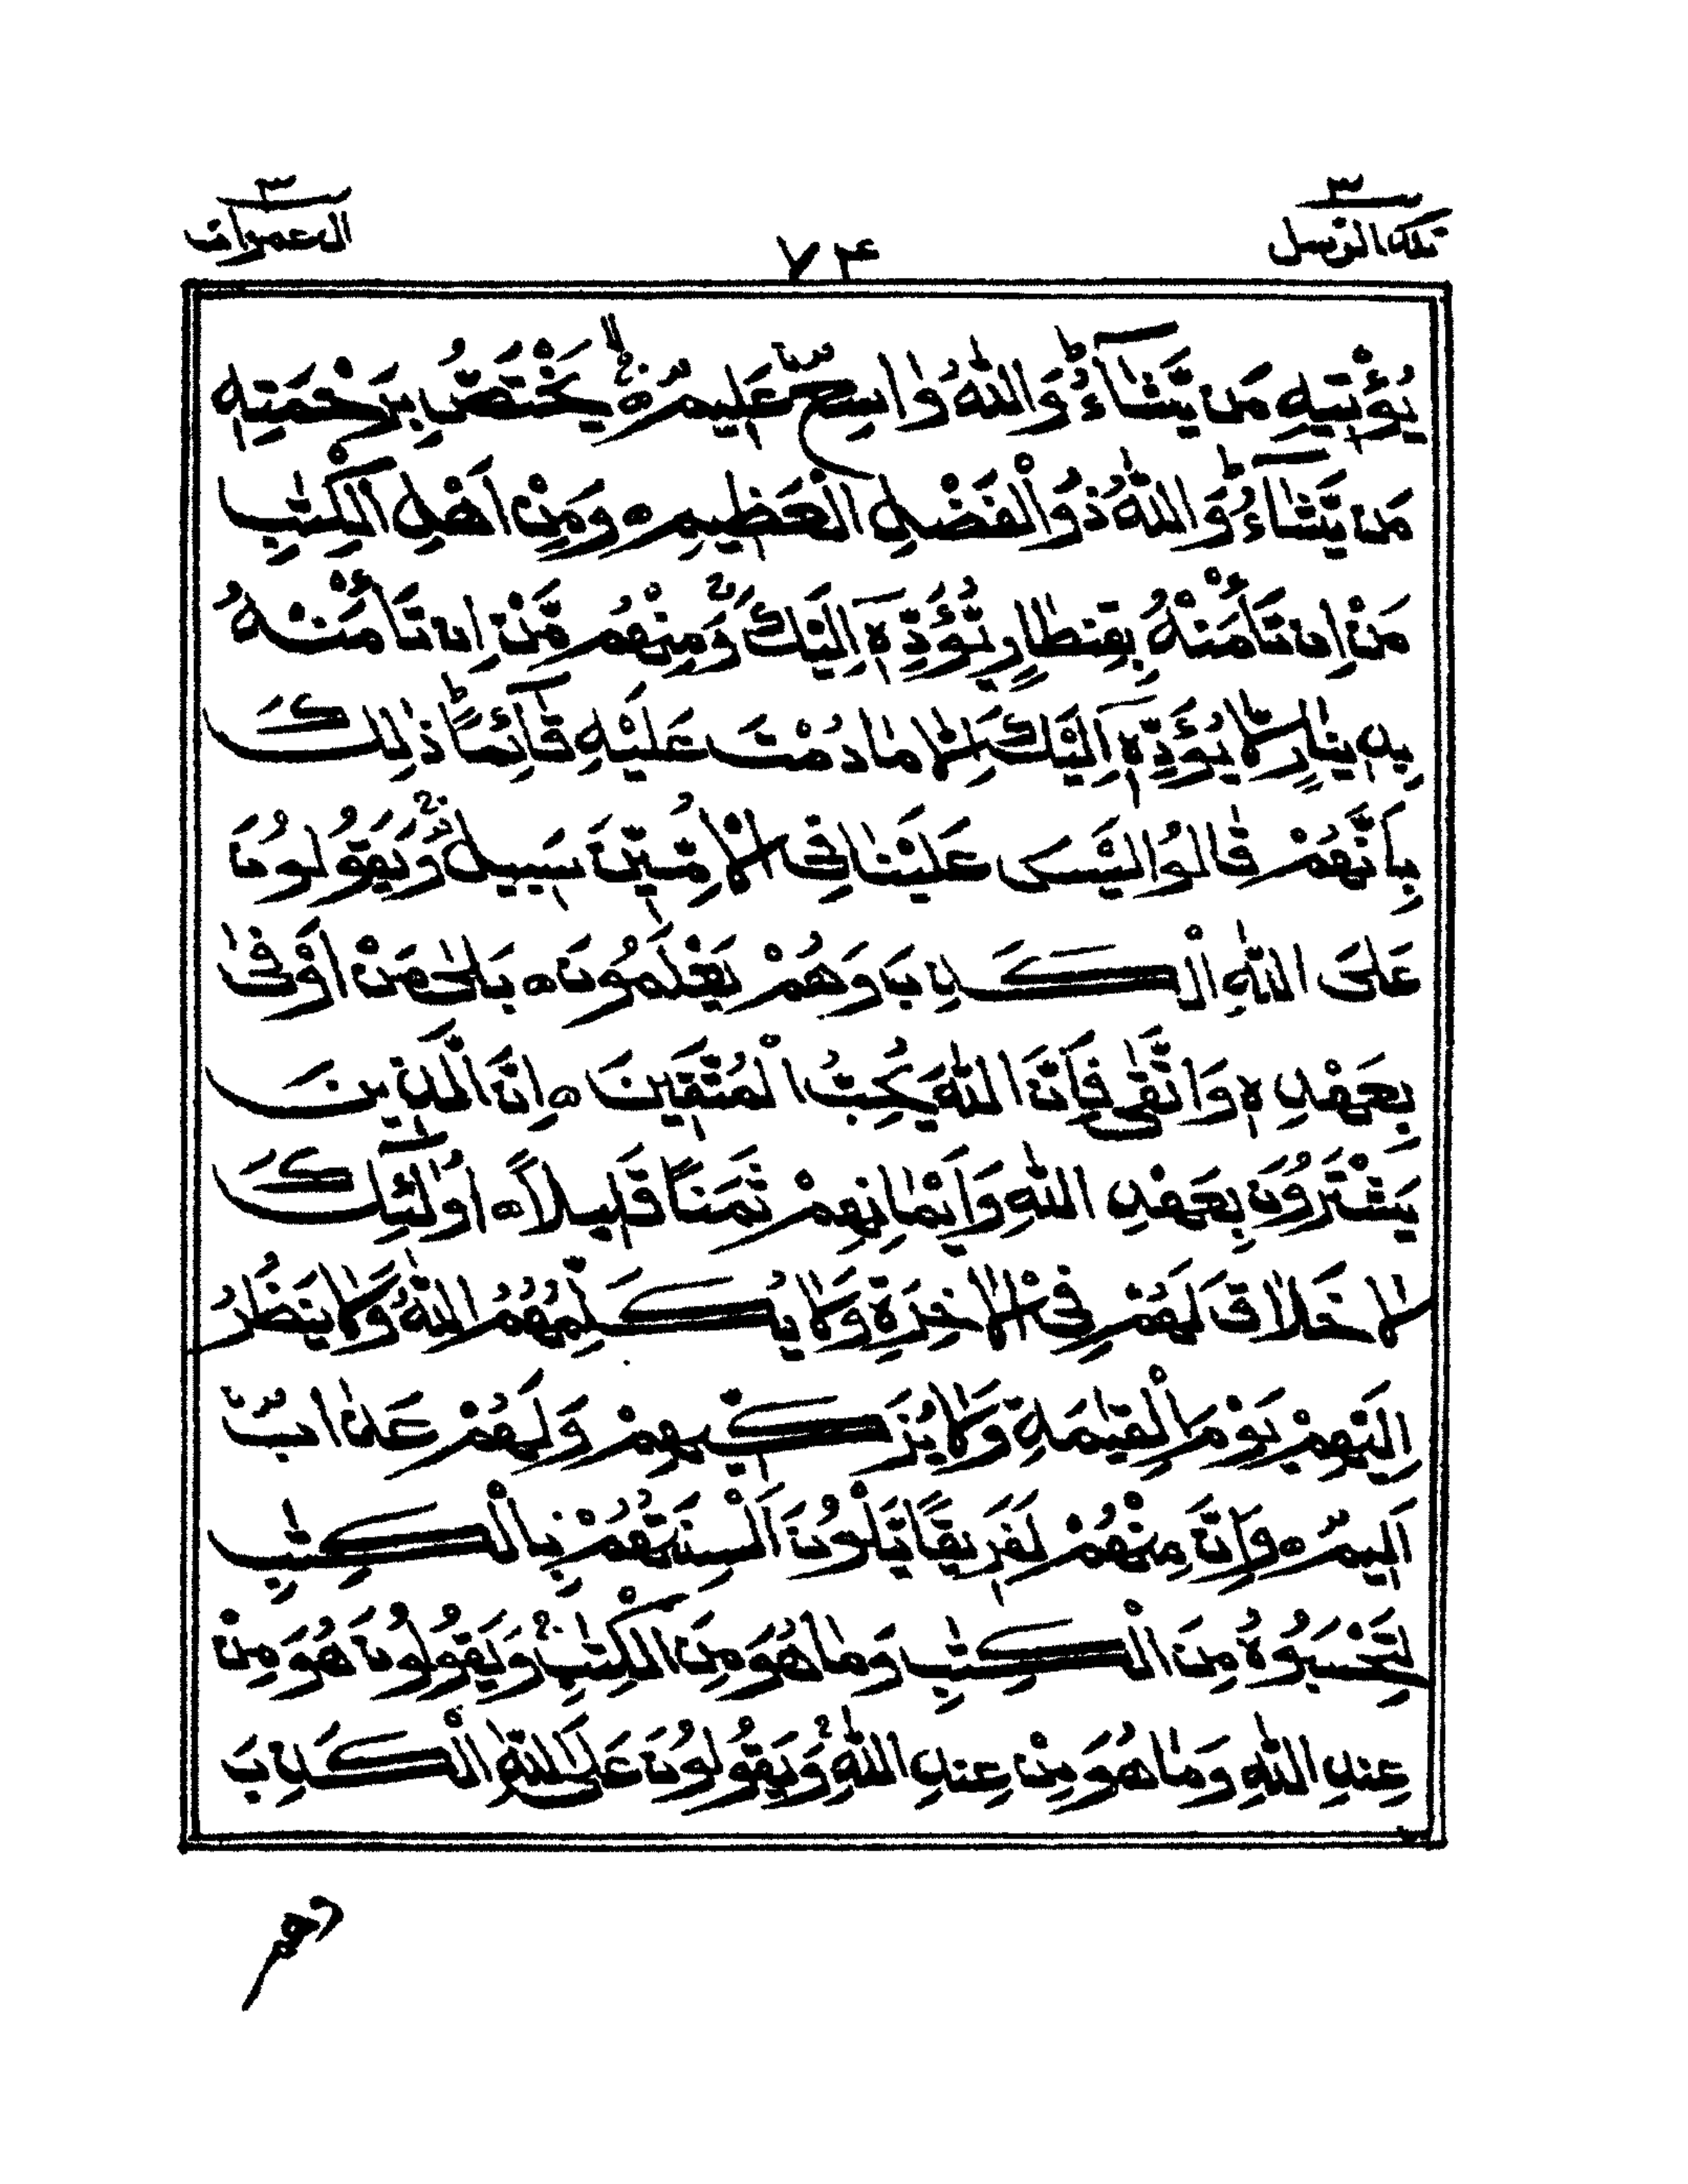 تلك الرسل ٣
٧٤
ال عمران ٣
يُؤْتِيهِ مَن يَّشَآءُ ؕ وَاللّٰهُ وَاسِعٌ عَلِيمٌ ۙ يَّخْتَصُّ بِرَحْمَتِهٖ
مَن يَّشَآءُ ؕ وَاللّٰهُ ذُو الْفَضْلِ الْعَظِيمِ ه وَمِنْ اَهْلِ الْكِتٰبِ
مَنْ اِن تَاْمَنْهُ بِقِنطَارٍ يُّؤَدِّهٖٓ اِلَيْكَ ۚ وَمِنْهُم مَّنْ اِن تَاْمَنْهُ
بِدِينَارٍ لَّا يُؤَدِّهٖٓ اِلَيْكَ اِلَّا مَا دُمْتَ عَلَيْهِ قَآئِمًا ؕ ذٰلِكَ
بِاَنَّهُمْ قَالُوا لَيْسَ عَلَيْنَا فِى الْاُمِّيّٖنَ سَبِيلٌ ۚ وَيَقُولُونَ
عَلَى اللّٰهِ الْكَذِبَ وَهُمْ يَعْلَمُونَ ه بَلٰى مَنْ اَوْفٰى
بِعَهْدِهٖ وَاتَّقٰى فَاِنَّ اللّٰهَ يُحِبُّ الْمُتَّقِينَ ه اِنَّ الَّذِينَ
يَشْتَرُونَ بِعَهْدِ اللّٰهِ وَاَيْمَانِهِمْ ثَمَنًا قَلِيلًا ه اُولٰٓئِكَ
لَا خَلَاقَ لَهُمْ فِى الْاٰخِرَةِ وَلَا يُكَلِّمُهُمُ اللّٰهُ وَلَا يَنظُرُ
اِلَيْهِمْ يَوْمَ الْقِيٰمَةِ وَلَا يُزَكِّيهِمْ وَلَهُمْ عَذَابٌ
اَلِيمٌ ه وَاِنَّ مِنْهُمْ لَفَرِيقًا يَّلْوُونَ اَلْسِنَتَهُمْ بِالْكِتٰبِ
لِتَحْسَبُوهُ مِنَ الْكِتٰبِ وَمَا هُوَ مِنَ الْكِتٰبِ ۚ وَيَقُولُونَ هُوَ مِنْ
عِندِ اللّٰهِ وَمَا هُوَ مِنْ عِندِ اللّٰهِ ۚ وَيَقُولُونَ عَلَى اللّٰهِ الْكَذِبَ
وهم